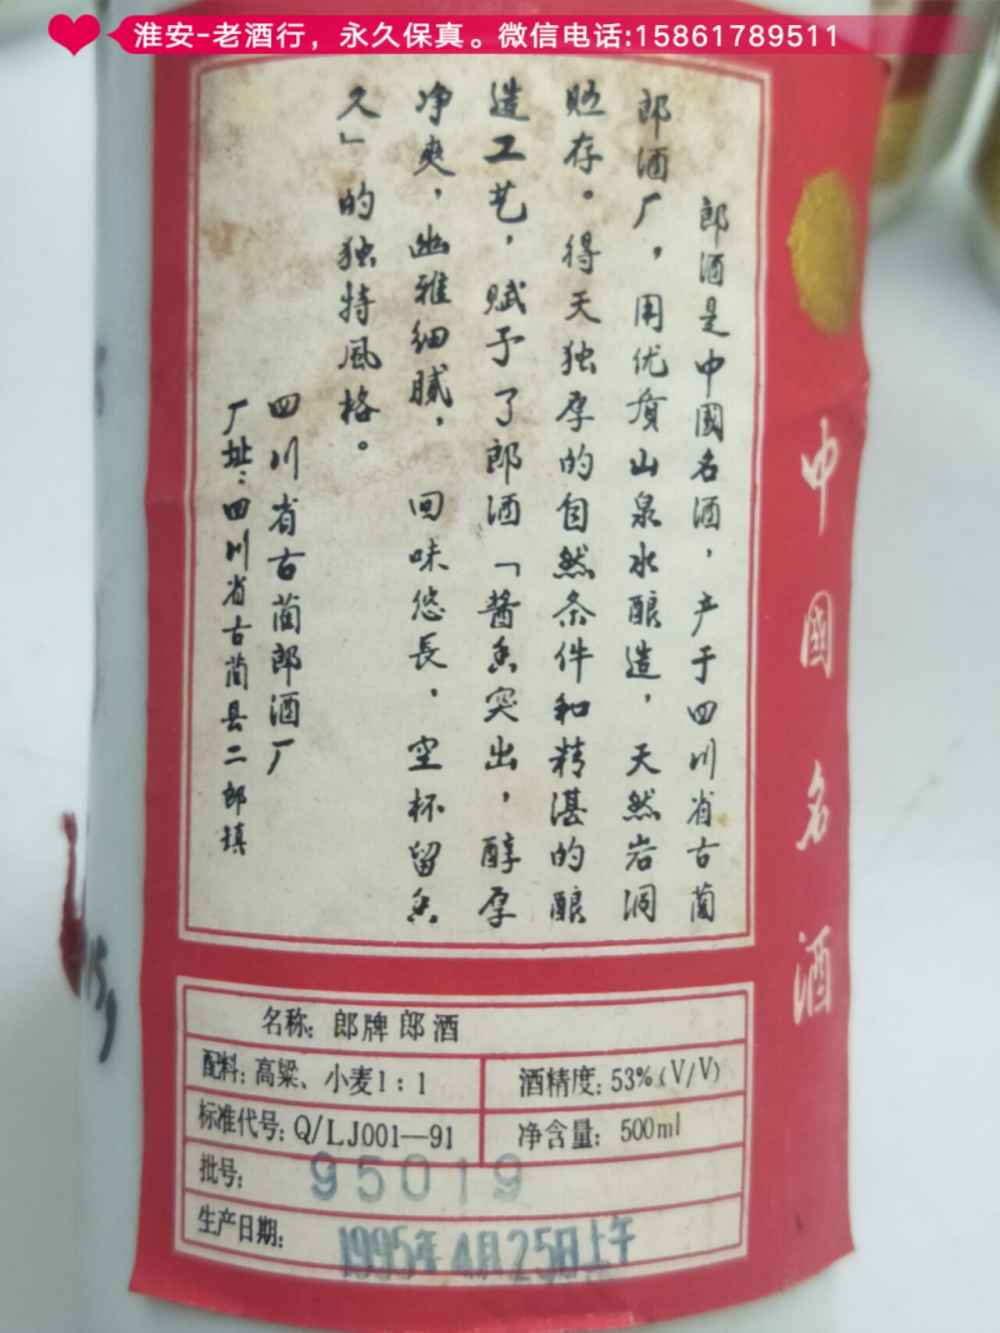 淮安-老酒行，永久保真。微信电话:15861789511
郎酒是中國名酒，产于四川省古蔺
郎酒厂，用优质山泉水酿造，天然岩洞
贮存。得天独厚的自然条件和精湛的酿
造工艺，赋予了郎酒「酱香突出，醇厚
净爽，幽雅细腻，回味悠長，空杯留香
久」的独特風格。
四川省古蔺郎酒厂
厂址：四川省古蔺县二郎镇
中國名酒
名称：郎牌郎酒
配料：高粱、小麦1：1
酒精度：53%(V/V)
标准代号：Q/LJ001—91
净含量：500ml
批号：95019
生产日期：1995年4月25日上午